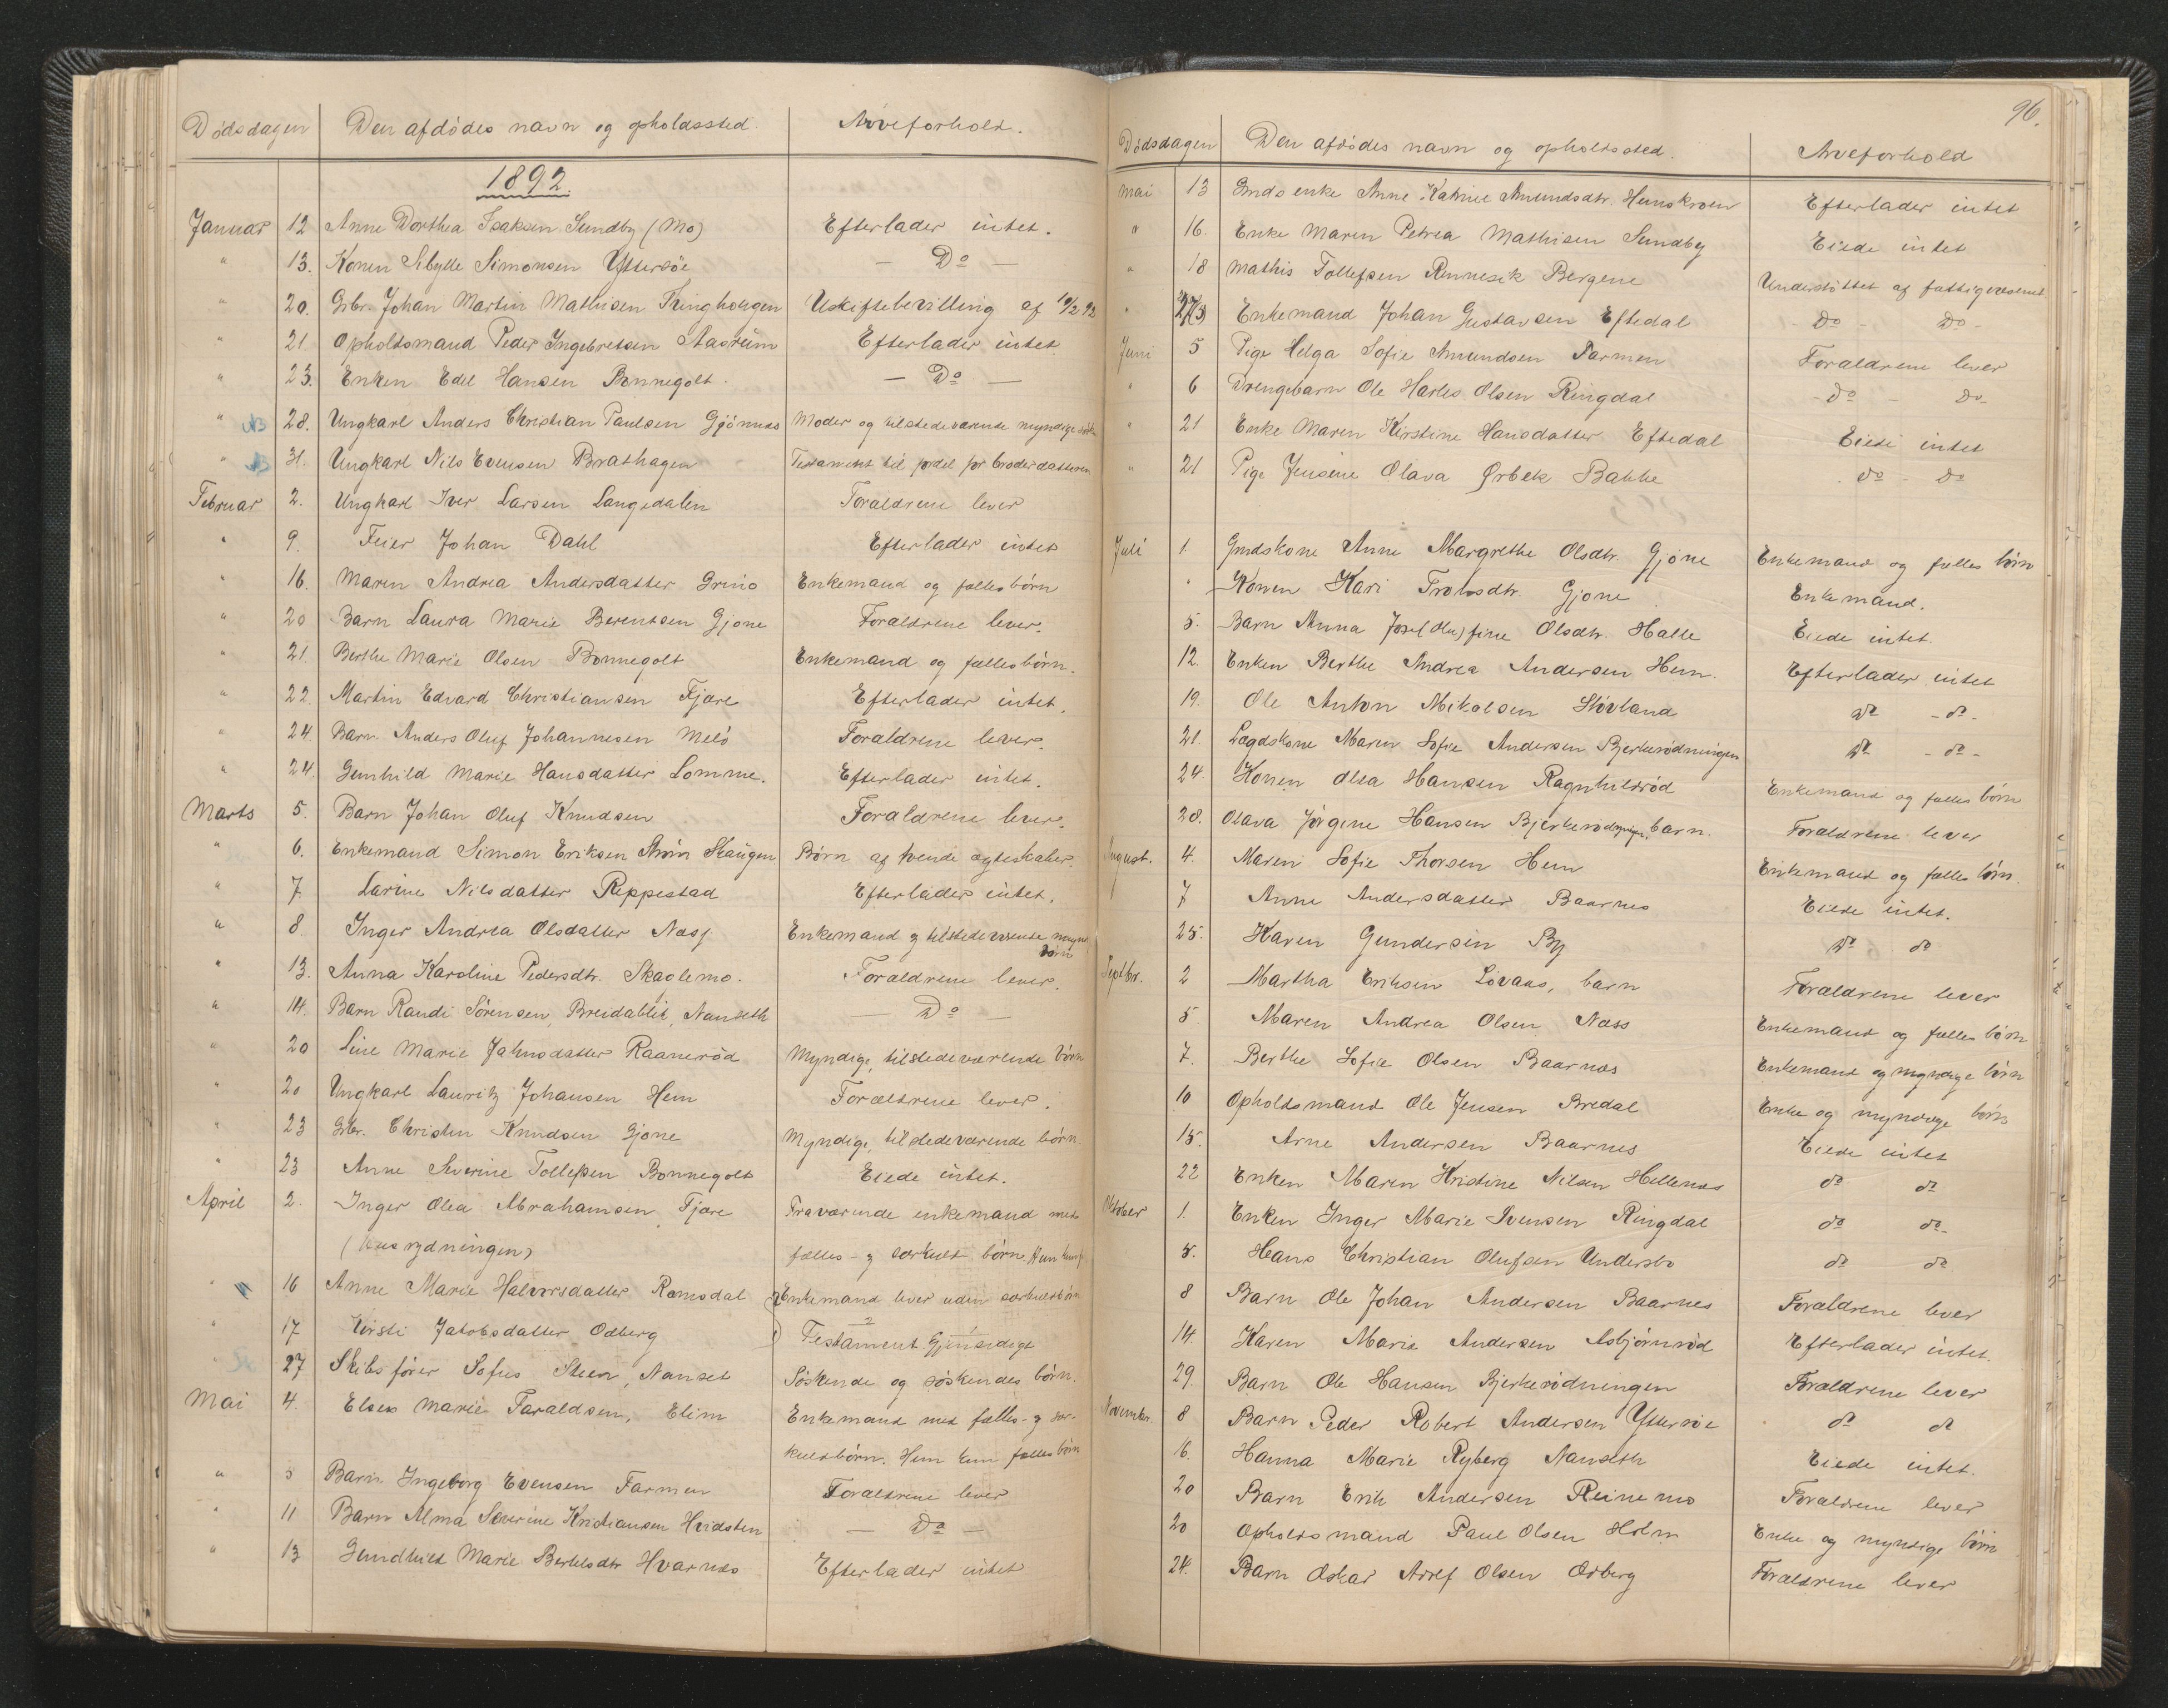 Dödsdagen Den afdödes navn og opholdssted. Arveforhold.
1892.
Januar 12 Anne Dorthea Isaksen Sundby (Mo) Efterlader intet.
" 13. Konen Sibylle Simonsen Yttersöe — Do —
" 20. Grbr. Johan Martin Mathisen Tinghougen Uskiftebevilling af 19/2 92
" 21 Opholdsmand Peder Ingebretsen Aasrum Efterlader intet
" 23. Enken Edel Hansen Bonnegolt. — Do —
" NB 28. Ungkarl Anders Christian Paulsen Gjönnes Moder og tilstedeværende myndige
" NB 31. Ungkarl Nils Evensen Brathagen Testament til fordel for broderdatteren
Februar 2. Ungkarl Iver Larsen Langedalen Forældrene lever
" 9. Feier Johan Dahl Efterlader intet
" 16. Maren Andrea Andersdatter Enkemand og fællesbörn
" 20 Barn Laura Marie Berentsen Gjone Forældrene lever.
" 21. Berthe Marie Olsen Bonnegolt Enkemand og fællesbörn.
" 22. Martin Edvard Christiansen Fjære Efterlader intet.
" 24. Barn Anders Oluf Johannesen Melö Forældrene lever.
" 24. Gunhild Marie Hansdatter Lomme. Efterlader intet.
Marts 5. Barn Johan Oluf Knudsen Forældrene lever.
" 6. Enkemand Simon Eriksen Skaugen Börn af tvende ægteskaber.
" 7. Larine Nilsdatter Reppestad Efterlader intet.
" 8. Inger Andrea Olsdatter Næsj Enkemand & tilstedeværende
börn
" 13. Anna Karoline Pedersdtr. Skaolemo. Forældrene lever.
" 14. Barn Randi Sörensen, Breidablik, Nanseth — Do —
" 20 Line Marie Jahnsdatter Raaneröd Myndige, tilstedeværende börn
" 20 Ungkarl Lauritz Johansen Hem Forældrene lever.
" 23 Grbr. Christen Knudsen Gjone Myndige, tilstedeværende börn.
" 23 Anne Severine Tollefsen Bonnegolt Eiede intet.
April 2. Inger Olea Abrahamsen Fjære Fraværende enkemand med
fælles- & særkuld börn. Hun kun
" 16 Anne Marie Halvorsdatter Ramsdal Enkemand lever uden særkuldbörn
" 17 Kirsti Jakobsdatter Odberg Testament Gjensidige
" 27 Skibsförer Sofus Steen, Nanset Söskende og söskendes börn.
Mai 4. Elses Marie Taraldsen, Elim Enkemand med fælles- & sær-
kuldbörn. Hun kun fælles börn
" 5 Barn Ingeborg Evensen Farmen Forældrene lever
" 11 Barn Alma Severine Kristiansen Hvidsten — Do —
" 13 Gundhild Marie Bertelsdtr Hvarnes Efterlader intet
96.
Dödsdagen Den afdödes navn og opholdssted. Arveforhold
Mai 13 Grnds enke Anne Katrine Amundsdtr. Hunskroen Efterlader intet
" 16. Enke Maren Petrea Mathisen Sundby Eiede intet
" 18 Mathis Tollefsen Rennesik Bergene Understöttet af fattigvæsenet
" Enkemand Johan Gustavsen Eftedal - Do - Do -
Juni 5 Pige Helga Sofie Amundsen Farmen Forældrene lever
" 6 Drengebarn Ole Harles Olsen Ringdal - Do - Do -
" 21 Enke Maren Kirstine Hansdatter Eftedal Eiede intet
" 21 Pige Jensine Olava Ørbek Bakke do - do
Juli 1. Grndskone Anne Margrethe Olsdtr. Gjöne Enkemand og fælles börn
" Konen Kari Trolsdtr. Gjone Enkemand.
5. Barn Anna Josefine Olsdtr. Halle Eiede intet.
12. Enken Berthe Andrea Andersen Hem. Efterlader intet
19. Ole Anton Mikalsen Stövland do - do -
21. Lægdskone Maren Sofie Andersen Bjerkerödningen do - do -
24. Konen Olea Hansen Ragnhilsröd Enkemand og fælles börn
28. Olava Jörgine Hansen Bjerkerödningen, barn. Forældrene lever
August. 4. Maren Sofie Thorsen Hem Enkemand og fælles börn.
7 Anne Andersdatter Baarnes Eiede intet.
25. Karen Gundersen By do do
Septbr. 2 Martha Eriksen Lövaas, barn Forældrene lever
5 Maren Andrea Olsen Næss Enkemand og fælles börn
7. Berthe Sofie Olsen Baarnæs Enkemand og myndige börn
10 Opholdsmand Ole Jensen Bredal Enke og myndige börn
15. Arne Andersen Baarnes Eiede intet
22 Enken Maren Kristine Nilsen Hellenæs do do
Oktober 1. Enken Inger Marie Ivensen Ringdal do do
5. Hans Christian Olufsen Undersbo do do
8 Barn Ole Johan Andersen Baarnes Forældrene lever
14. Karen Marie Andersen Asbjörnröd Efterlader intet.
29. Barn Ole Hansen Bjerkerödningen Forældrene lever
November. 8 Barn Peder Robert Andersen Yttersöe do do
16. Hanna Marie Ryberg Nanseth Eiede intet.
20 Barn Erik Andersen Reinemo Forældrene lever
20 Opholdsmand Paul Olsen Holm Enke og myndige börn
24. Barn Oskar Adolf Olsen Odberg Forældrene lever